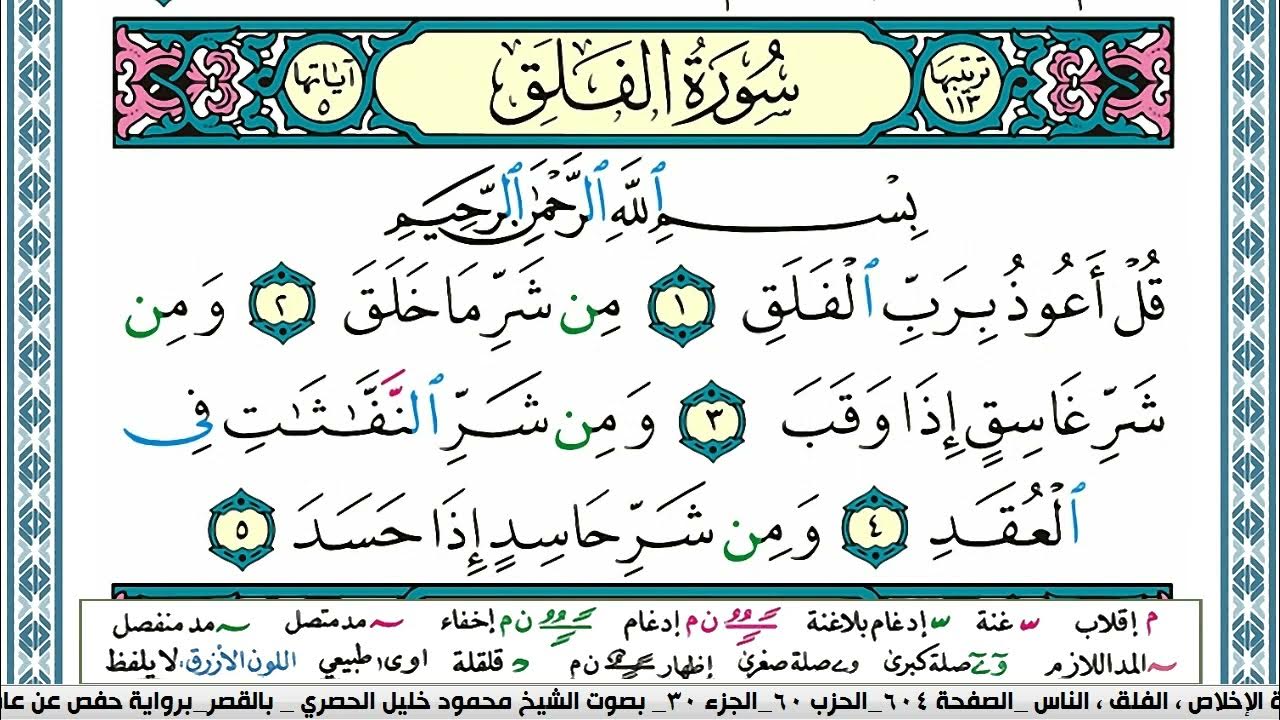 ترتيبها ١١٣ سُورَةُ الفَلَقِ آياتها ٥
بِسْمِ ٱللَّهِ ٱلرَّحْمَٰنِ ٱلرَّحِيمِ
قُلْ أَعُوذُ بِرَبِّ ٱلْفَلَقِ ١ مِن شَرِّ مَا خَلَقَ ٢ وَمِن
شَرِّ غَاسِقٍ إِذَا وَقَبَ ٣ وَمِن شَرِّ ٱلنَّفَّٰثَٰتِ فِى
ٱلْعُقَدِ ٤ وَمِن شَرِّ حَاسِدٍ إِذَا حَسَدَ ٥
م إقلاب ـس غنة ـس إدغام بلاغنة ن م إدغام ن م إخفاء ~ مد متصل ~ مد منفصل
~ المد اللازم و ے صلة كبرى و ے صلة صغرى إظهار ن م د قلقلة اوى ا طبيعي اللون الأزرق: لا يلفظ
ة الإخلاص ، الفلق ، الناس _الصفحة ٦٠٤_الحزب ٦٠_الجزء ٣٠_ بصوت الشيخ محمود خليل الحصري _ بالقصر_برواية حفص عن عا